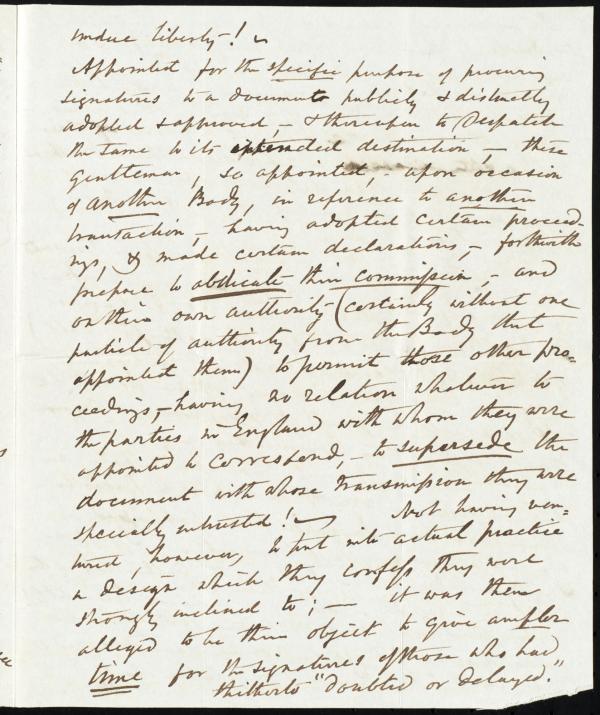 undue liberty! ~
Appointed for the specific purpose of procuring
signatures to a document publicly & distinctly
adopted & approved, - & thereupon to Despatch
the same to its destination, - these
Gentlemen, so appointed, - upon occasion
of another Body, in reference to another
transaction, - having adopted certain proceed-
ings, & made certain declarations, - forthwith
prepare to abdicate their commission, - and
on their own authority (certainly without one
particle of authority from the Body that
appointed them) to permit those other pro=
ceedings, - having no relation whatever to
the parties in England with whom they were
appointed to correspond, - to supersede the
document with whose transmission they were
specially entrusted! ~ Not having ven=
tured, however, to put into actual practice
a design which they confess they were
strongly inclined to; - it was then
alleged to be their object to give ampler
time for the signatures of those who had
hitherto "doubted or delayed."